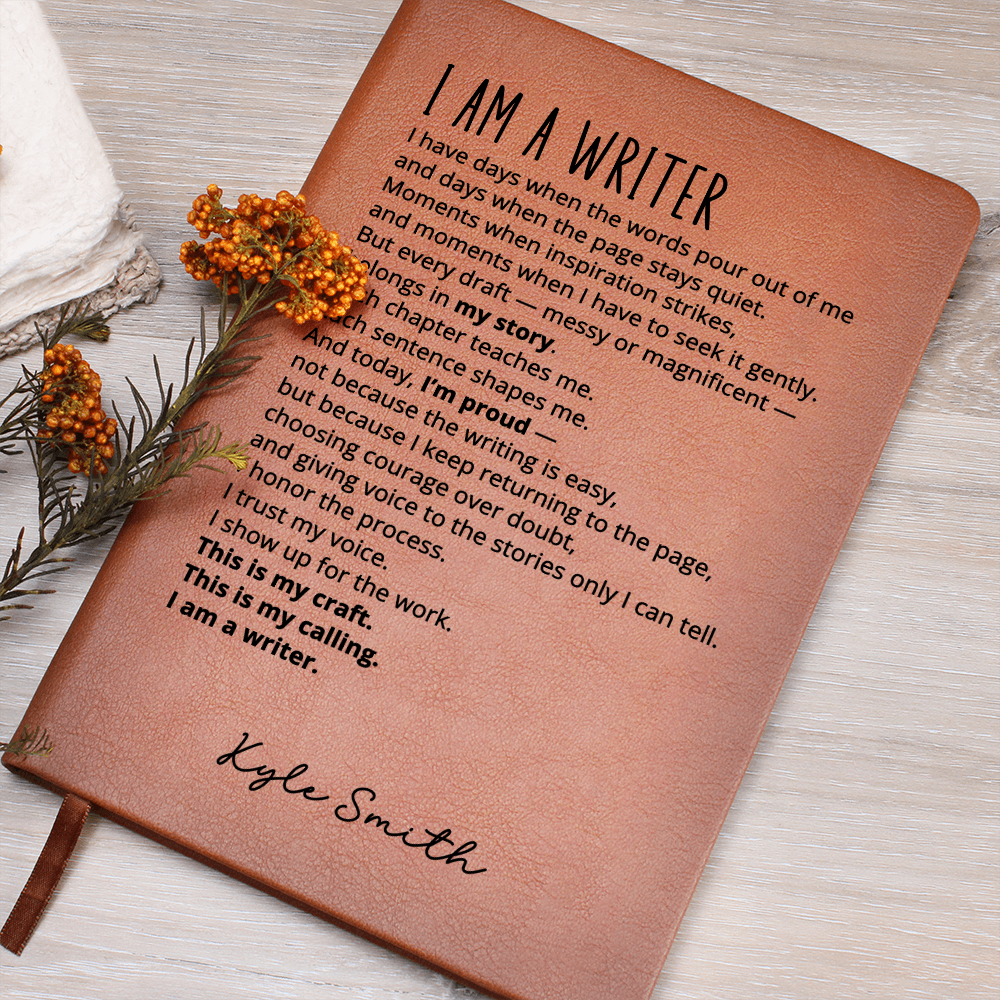 I AM A WRITER
I have days when the words pour out of me
and days when the page stays quiet.
Moments when inspiration strikes,
and moments when I have to seek it gently.
But every draft — messy or magnificent —
in my story.
chapter teaches me.
sentence shapes me.
And today, I'm proud —
not because the writing is easy,
but because I keep returning to the page,
choosing courage over doubt,
and giving voice to the stories only I can tell.
I honor the process.
I trust my voice.
I show up for the work.
This is my craft.
This is my calling.
I am a writer.
Kyle Smith